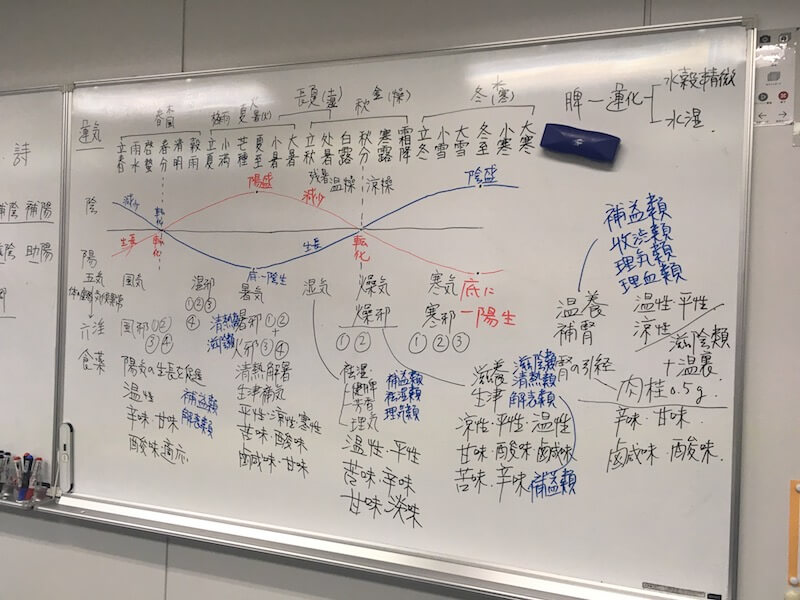 詩
補陽
助陽
運気
春 木 風
梅雨 夏 火
長夏(土)
秋 金(燥)
冬 水(寒)
脾一運化
水穀精微
水湿
立春 雨水 啓蟄 春分 清明 穀雨 立夏 小満 芒種 夏至 小暑 大暑 立秋 处暑 白露 秋分 寒露 霜降 立冬 小雪 大雪 冬至 小寒 大寒
残暑 温燥 涼燥
陰
減少
転化
陽盛
減少
陰盛
陽
生長
転化
底一陰生
生長
転化
底に一陽生
五気
風気
湿邪
①②③
④
暑気
湿気
燥気
寒気
六淫
風邪①②
③④
清熱類
滋陰類
暑邪①②
+
火邪③④
燥邪
①②
寒邪
①②③
食薬
陽気の生長を促進
温性
辛味・甘味
酸味適応
補益類
解表類
清熱解暑
生津補気
平性・涼性・寒性
苦味・酸味
鹹味・甘味
祛湿
健脾
芳香
理気
補益類
祛湿類
理気類
温性・平性
苦味・辛味
甘味・淡味
滋養
生津
滋陰類
清熱類
解表類
涼性・平性・温性
甘味・酸味・鹹味
苦味・辛味
補益類
補益類
收渋類
理気類
理血類
温養
補腎
温性・平性
涼性
滋陰類
+温裏
腎の引経
肉桂0.5g
辛味・甘味
鹹味・酸味